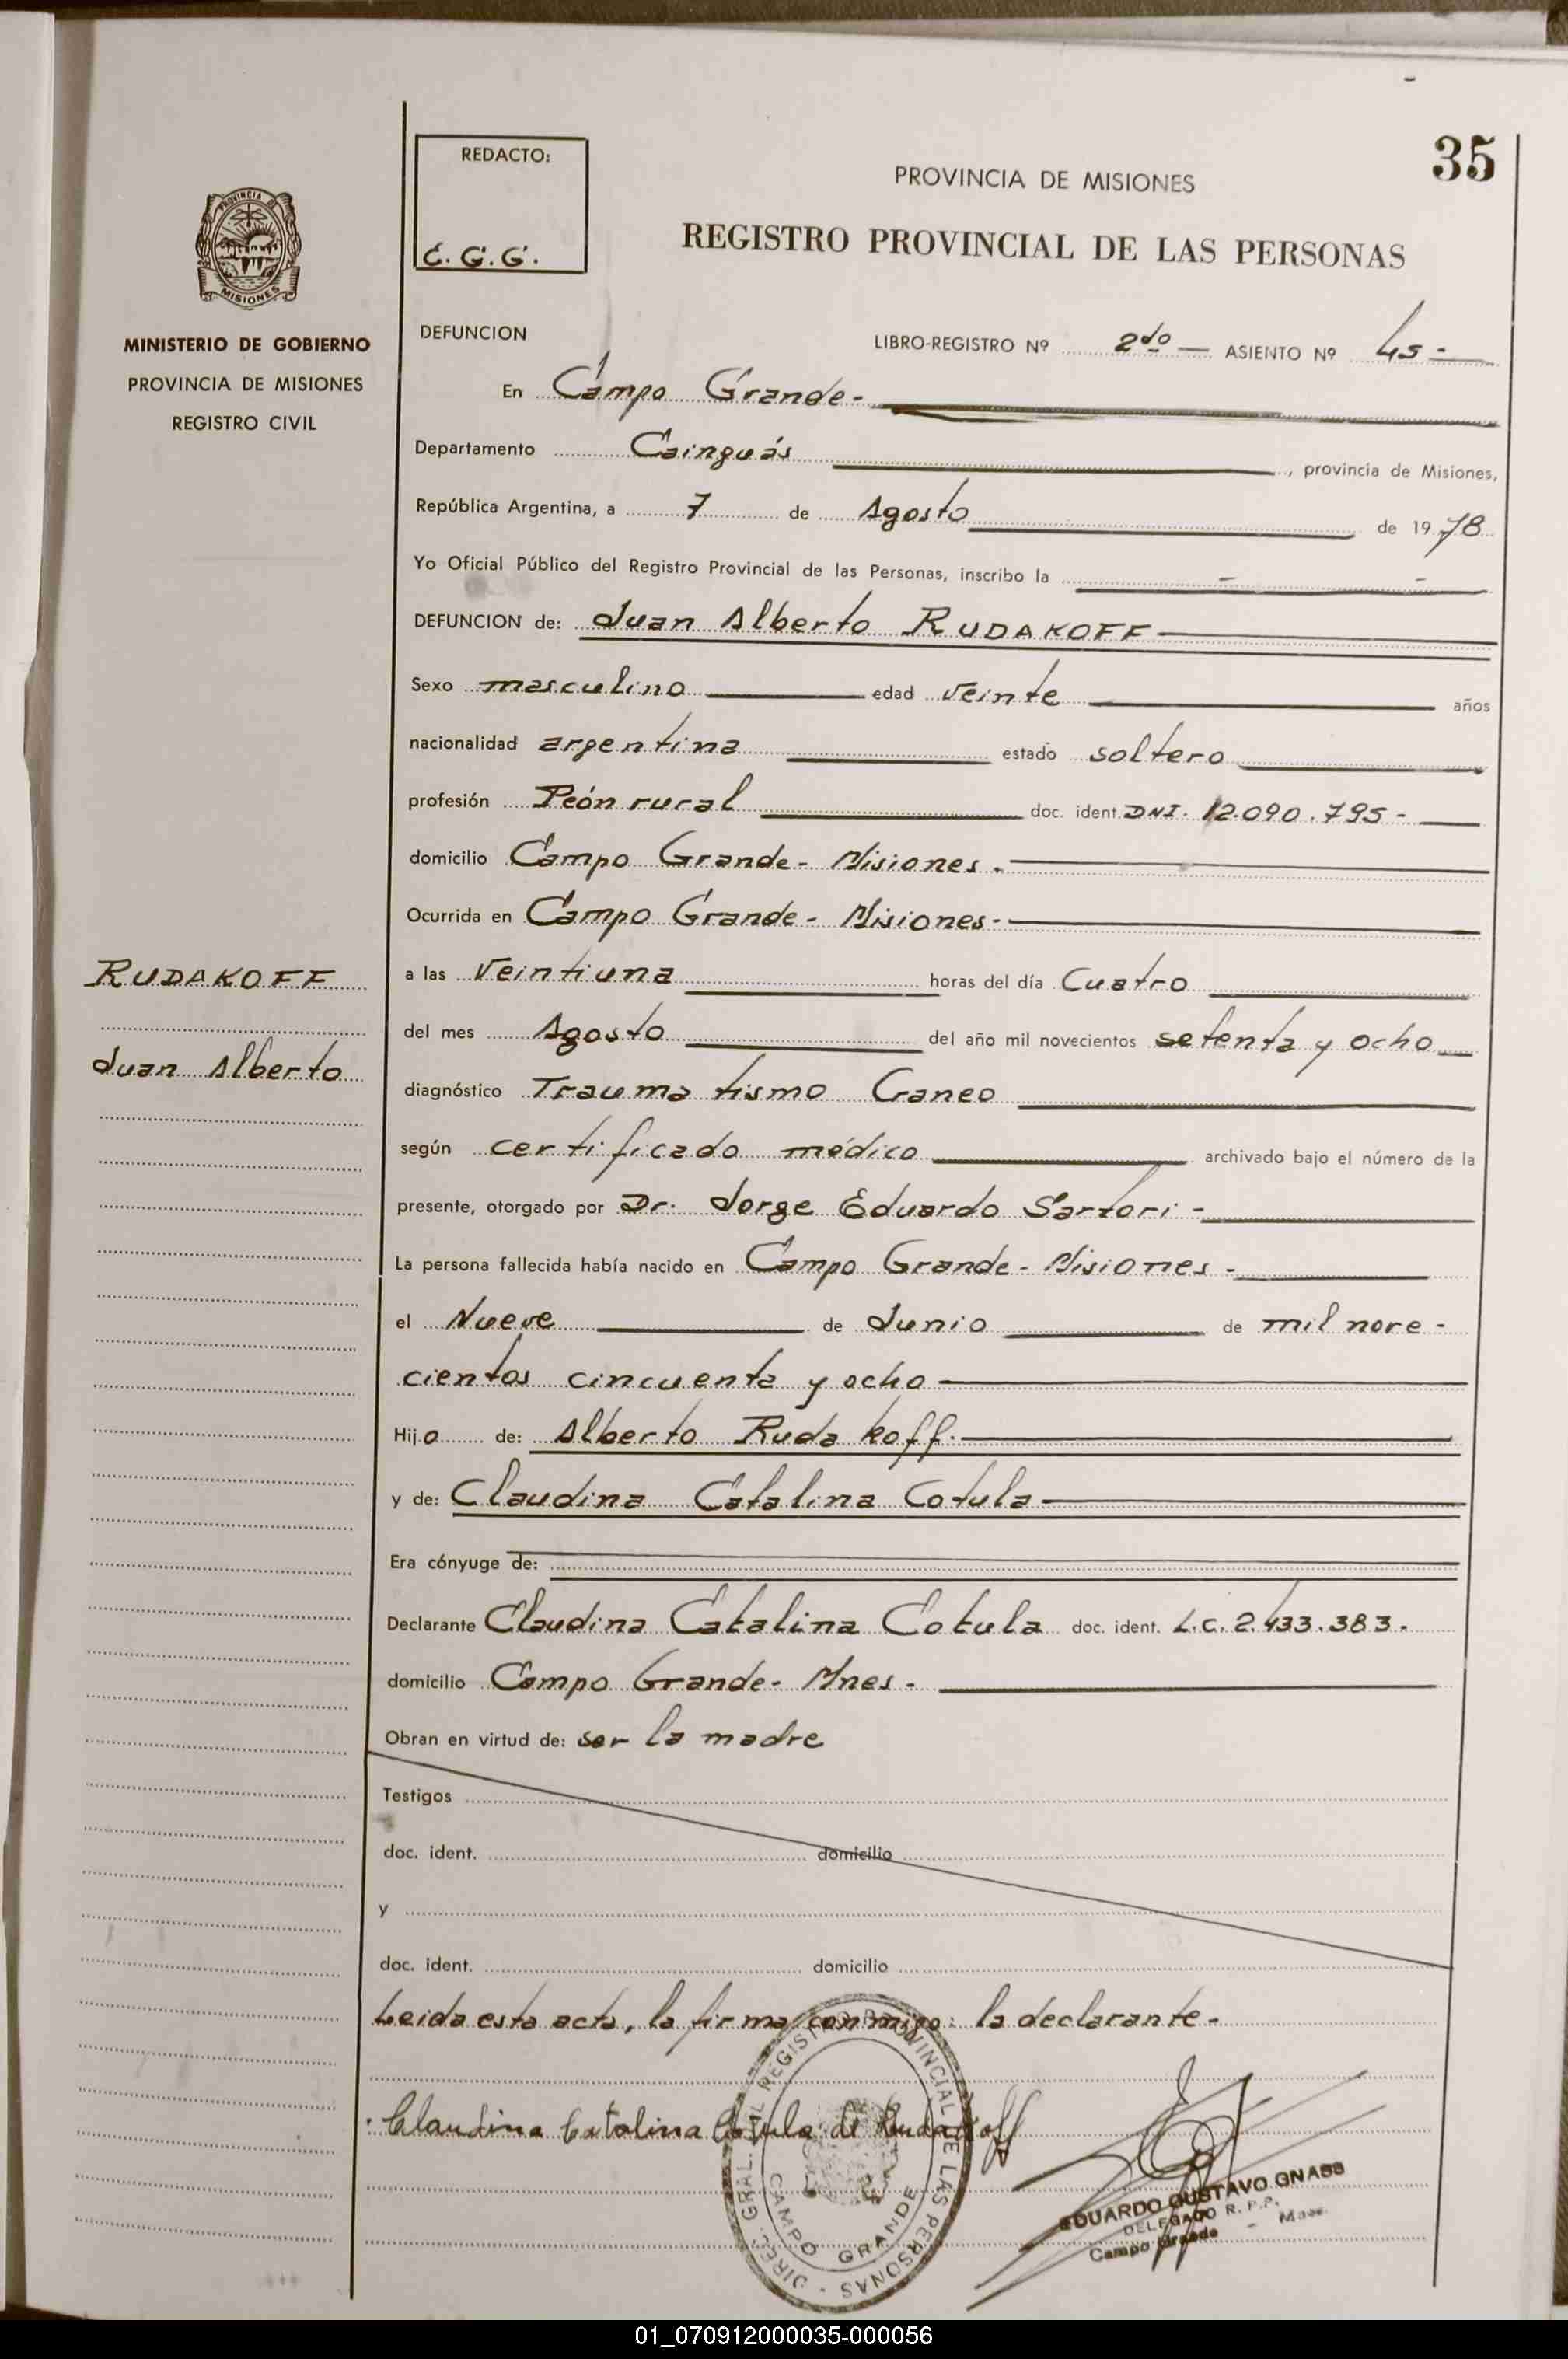 35
REDACTO:
E. G. G.
PROVINCIA DE MISIONES
REGISTRO PROVINCIAL DE LAS PERSONAS
PROVINCIA DE
MISIONES
MINISTERIO DE GOBIERNO
PROVINCIA DE MISIONES
REGISTRO CIVIL
DEFUNCION LIBRO-REGISTRO Nº 2do — ASIENTO Nº 45 -
En Campo Grande-
Departamento Cainguás, provincia de Misiones,
República Argentina, a 7 de Agosto de 1978
Yo Oficial Público del Registro Provincial de las Personas, inscribo la - -
DEFUNCION de: Juan Alberto RUDAKOFF
Sexo masculino edad veinte años
nacionalidad argentina estado soltero
profesión Peón rural doc. ident. DNI. 12.090.795-
domicilio Campo Grande- Misiones.
Ocurrida en Campo Grande- Misiones-
RUDAKOFF
Juan Alberto
a las Veintiuna horas del día Cuatro
del mes Agosto del año mil novecientos setenta y ocho
diagnóstico Traumatismo Craneo
según certificado médico archivado bajo el número de la
presente, otorgado por Dr. Jorge Eduardo Sartori-
La persona fallecida había nacido en Campo Grande- Misiones-
el Nueve de Junio de mil nove-
cientos cincuenta y ocho
Hijo de: Alberto Rudakoff.
y de: Claudina Catalina Cotula
Era cónyuge de:
Declarante Claudina Catalina Cotula doc. ident. L.C. 2.433.383.
domicilio Campo Grande- Mnes-
Obran en virtud de: ser la madre
Testigos
doc. ident. domicilio
y
doc. ident. domicilio
Leida esta acta, la firma conmigo: la declarante-
Claudina Catalina Cotula de Rudakoff
DIREC. GRAL. DEL REGISTRO PROVINCIAL DE LAS PERSONAS -
CAMPO GRANDE
EDUARDO GUSTAVO GNASS
DELEGADO R. P. P.
Campo Grande - Mnes.
01_070912000035-000056